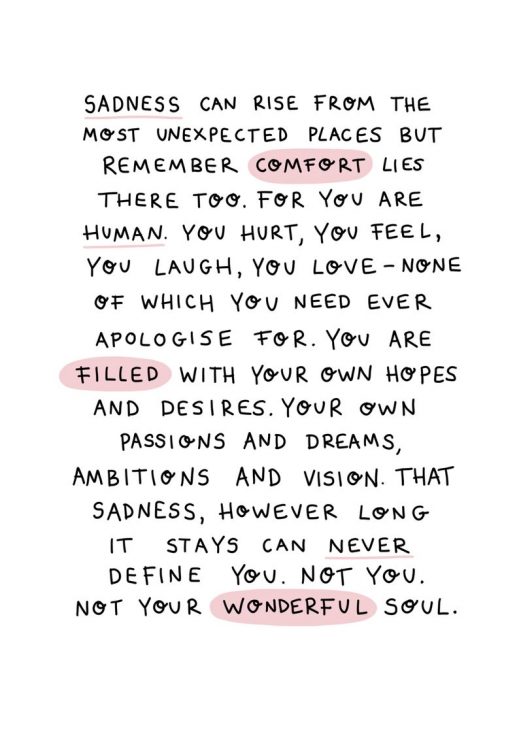 SADNESS CAN RISE FROM THE
MOST UNEXPECTED PLACES BUT
REMEMBER COMFORT LIES
THERE TOO. FOR YOU ARE
HUMAN. YOU HURT, YOU FEEL,
YOU LAUGH, YOU LOVE - NONE
OF WHICH YOU NEED EVER
APOLOGISE FOR. YOU ARE
FILLED WITH YOUR OWN HOPES
AND DESIRES. YOUR OWN
PASSIONS AND DREAMS,
AMBITIONS AND VISION. THAT
SADNESS, HOWEVER LONG
IT STAYS CAN NEVER
DEFINE YOU. NOT YOU.
NOT YOUR WONDERFUL SOUL.